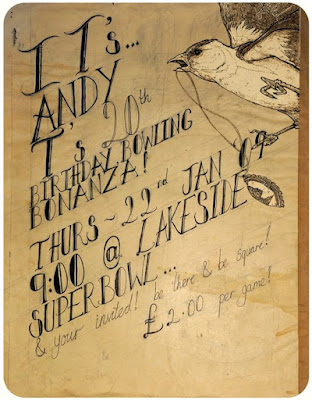 IT's...
ANDY
T's 20th
BIRTHDAY BOWLING
BONANZA!
THURS ~ 22nd JAN 09
9:00 @ LAKESIDE
SUPERBOWL...
& your invited! be there & be square!
£2.00 per game!